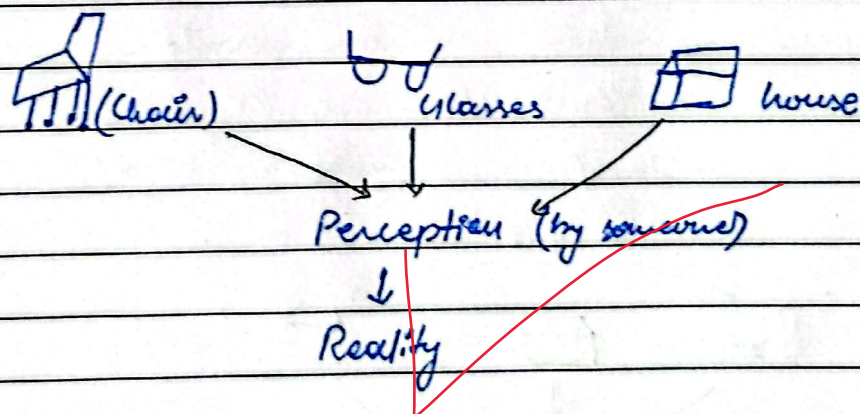 (Chair) Glasses house
Perception (by someone)
Reality